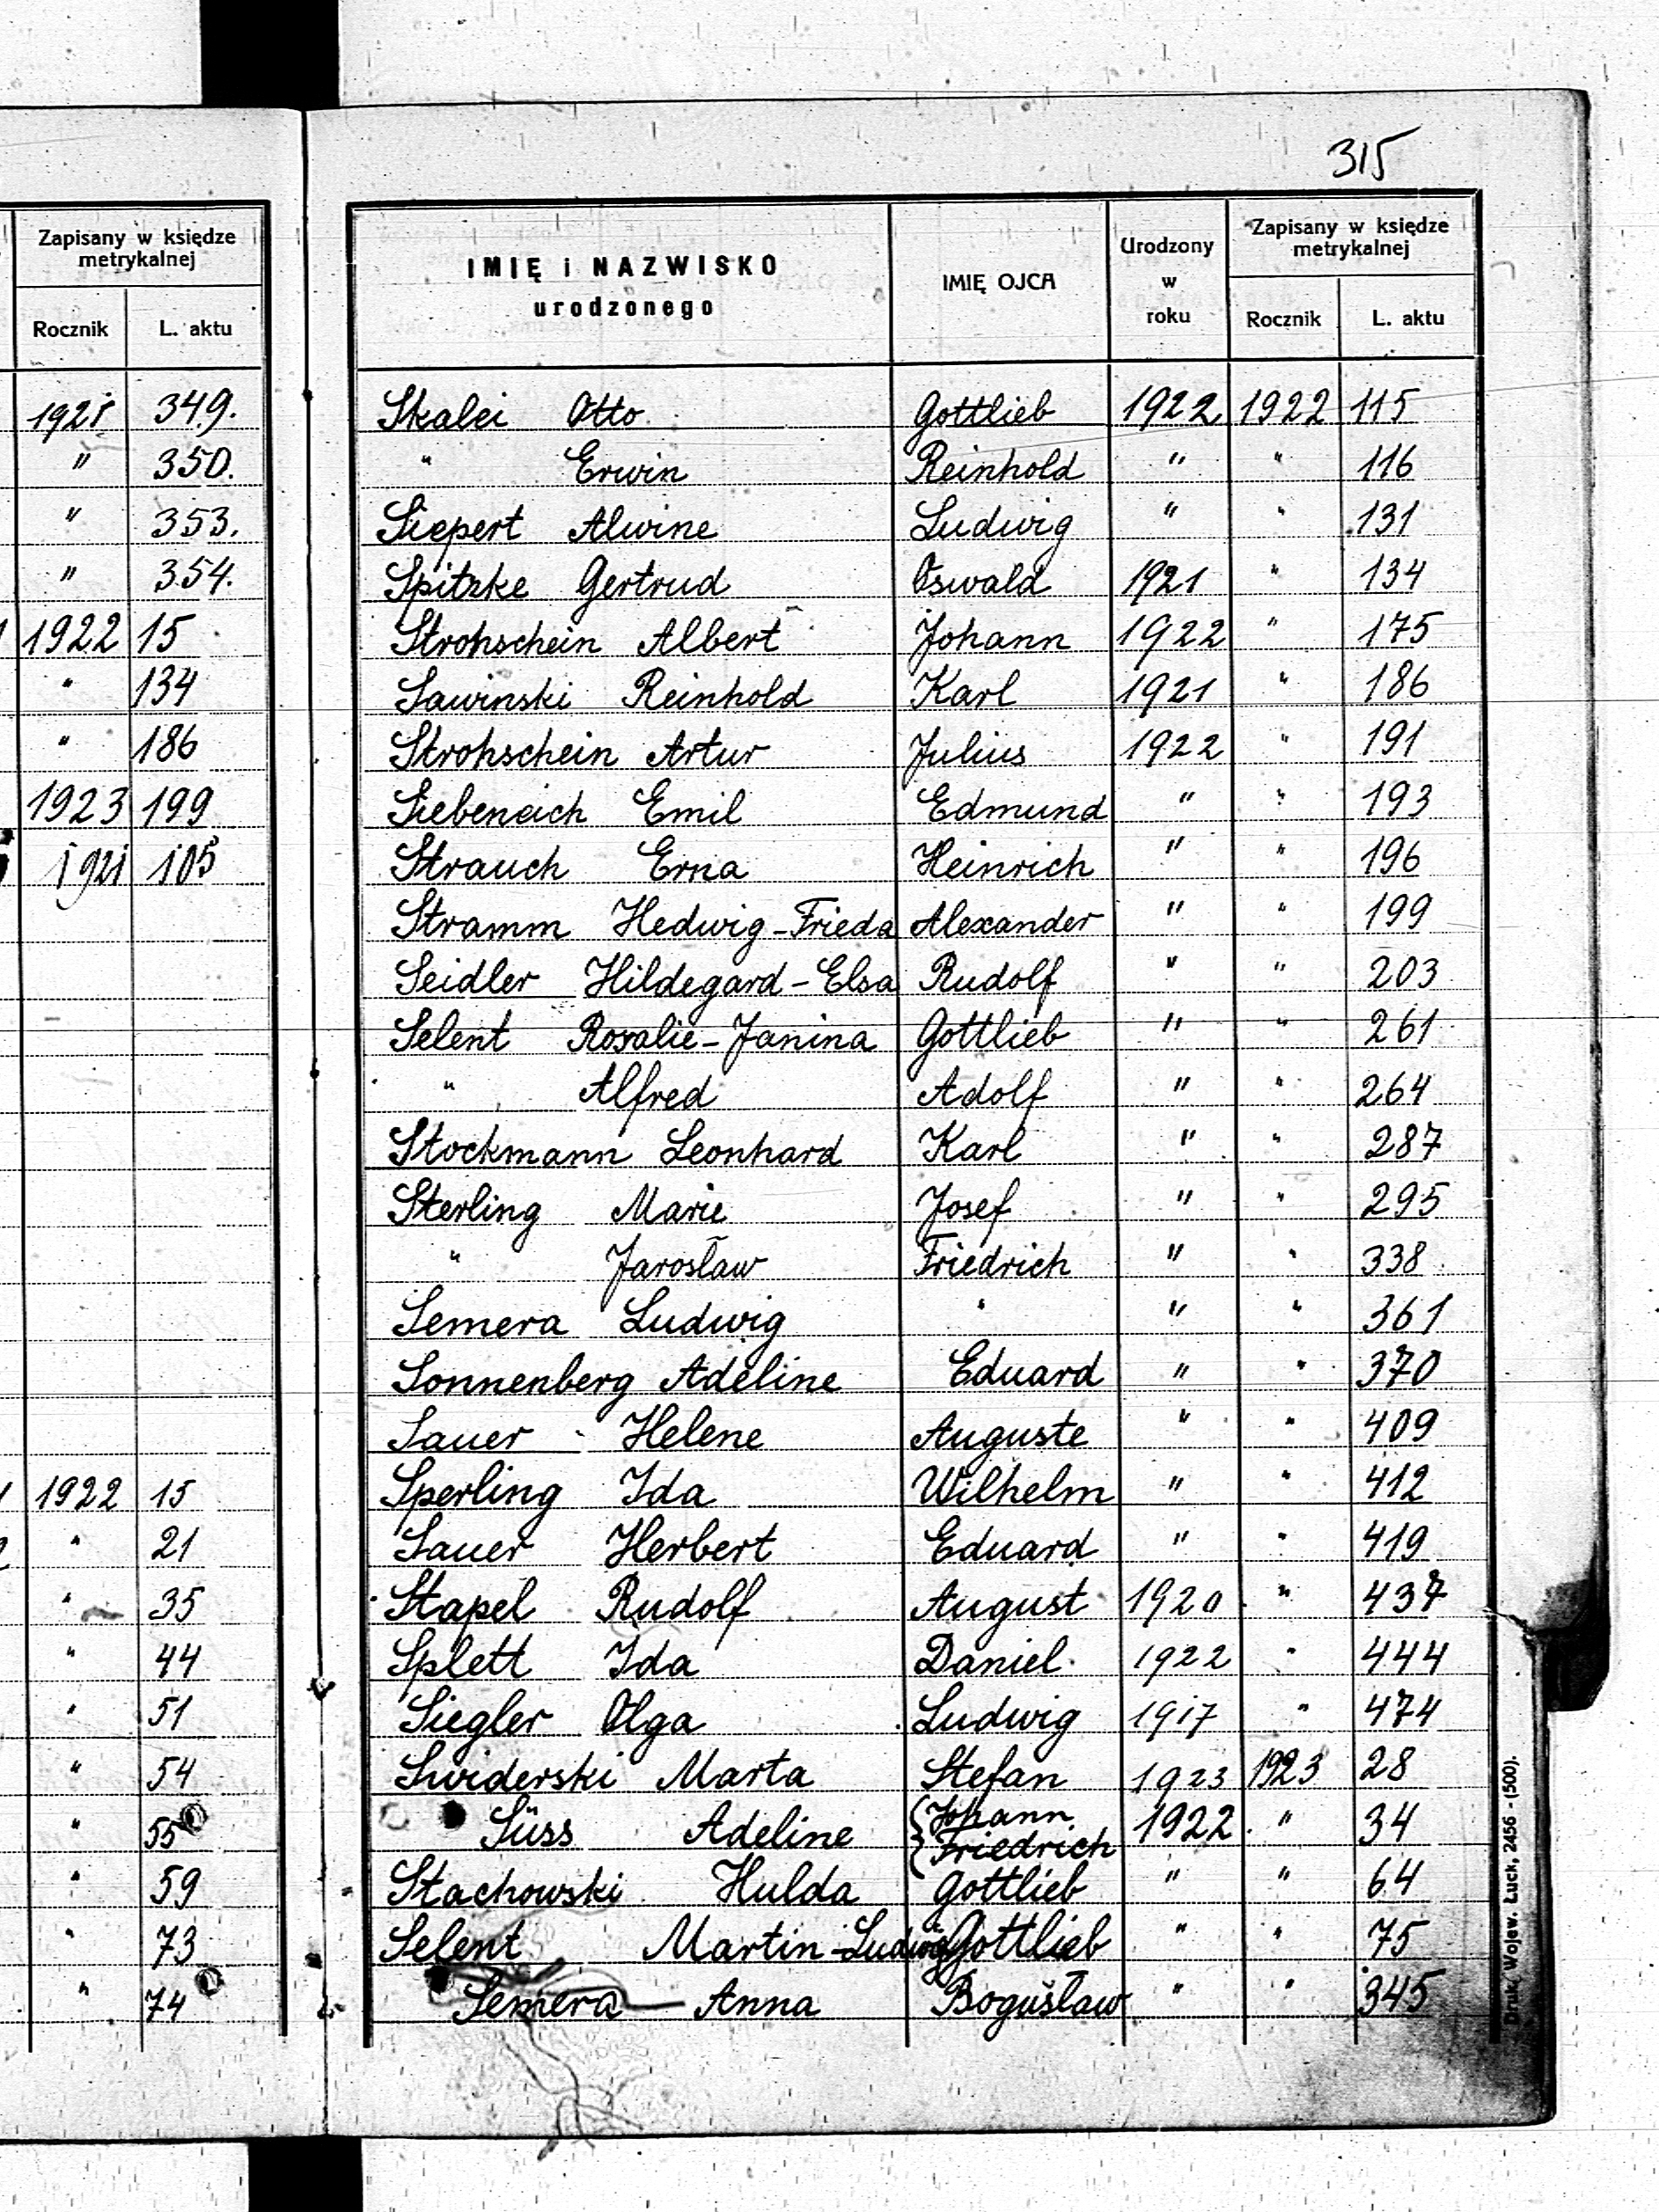 315
Zapisany w księdze
metrykalnej
Rocznik L. aktu
1921 349.
" 350.
" 353.
" 354.
1922 15
" 134
" 186
1923 199
1921 105
1922 15
" 21
" 35
" 44
" 51
" 54
" 55
" 59
" 73
" 74
IMIĘ i NAZWISKO
urodzonego
IMIĘ OJCA
Urodzony
w
roku
Zapisany w księdze
metrykalnej
Rocznik L. aktu
Skalei Otto Gottlieb 1922 1922 115
" Erwin Reinhold " " 116
Siepert Alwine Ludwig " " 131
Spitzke Gertrud Oswald 1921 " 134
Strohschein Albert Johann 1922 " 175
Sawinski Reinhold Karl 1921 " 186
Strohschein Artur Julius 1922 " 191
Siebeneich Emil Edmund " " 193
Strauch Erna Heinrich " " 196
Stramm Hedwig-Frieda Alexander " " 199
Seidler Hildegard-Elsa Rudolf " " 203
Selent Rosalie-Janina Gottlieb " " 261
" Alfred Adolf " " 264
Stockmann Leonhard Karl " " 287
Sterling Marie Josef " " 295
" Jarosław Friedrich " " 338
Semera Ludwig " " " 361
Sonnenberg Adeline Eduard " " 370
Sauer Helene Auguste " " 409
Sperling Ida Wilhelm " " 412
Sauer Herbert Eduard " " 419
Stapel Rudolf August 1920 " 437
Splett Ida Daniel 1922 " 444
Siegler Olga Ludwig 1917 " 474
Swiderski Marta Stefan 1923 1923 28
Süss Adeline { Johann Friedrich 1922 " 34
Stachowski Hulda Gottlieb " " 64
Selent Martin-Ludwig Gottlieb " " 75
Semera Anna Bogusław " " 345
Druk. Wojew. Łuck, 2456 - (500).